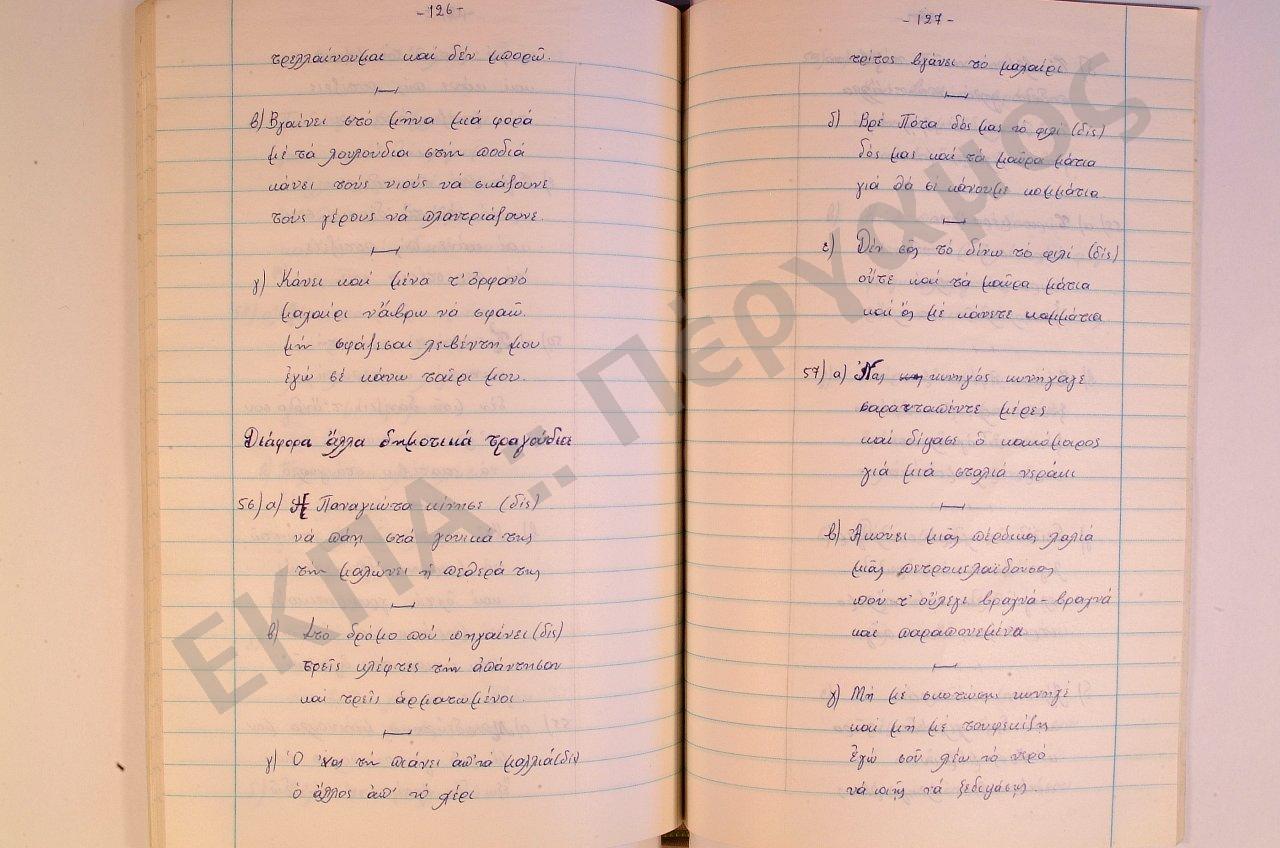 -126-
τρελλαίνουμαι καί δέν μπορῶ.
β) Βγαίνει στό μῆνα μιά φορά
μέ τά λουλούδια στήν ποδιά
κάνει τούς νιούς νά σκάζουνε
τούς γέρους νά πλαντριάζουνε.
γ) Κάνει καί μένα τ' ὀρφανό
μαχαίρι νἄβρω νά σφαῶ.
μήν σφάζεσαι λεβέντη μου
ἐγώ σέ κάνω ταῖρι μου.
Διάφορα ἄλλα δημοτικά τραγούδια
56) α) Ἡ Παναγιώτα κίνησε (δίς)
νά πάῃ στά γονικά της
τήν μαλώνει ἡ πεθερά της
β) Στό δρόμο πού πηγαίνει (δίς)
τρεῖς κλέφτες τήν ἀπάντησαν
καί τρεῖς ἁρματωμένοι.
γ) Ὁ ἕνας τήν πιάνει ἀπ' τά μαλλιά (δίς)
ὁ ἄλλος ἀπ' τό χέρι
-127-
τρίτος βγάνει τό μαχαίρι
δ) Βρέ Πότα δός μας τό φιλί (δίς)
δός μας καί τά μαῦρα μάτια
γιά θά σέ κάνουμε κομμάτια
ε) Δέν σᾶς τό δίνω τό φιλί (δίς)
οὔτε καί τά μαῦρα μάτια
καί ἄς μέ κάνετε κομμάτια
57) α) Ἕνας κυνηγός κυνήγαγε
σαρανταπέντε μέρες
καί δίψασε ὁ κακόμοιρος
γιά μιά σταλιά νεράκι
β) Ἀκούει μιᾶς πέρδικας λαλιά
μιᾶς πετροκελαϊδούσας
πού τ' οὔλεγε βραχνά - βραχνά
καί παραπονεμένα
γ) Μή μέ σκοτώσῃς κυνηγέ
καί μή μέ τουφεκίζῃς
ἐγώ σοῦ λέω τό νερό
νά πιῇς νά ξεδιψάσῃς
ΕΚΠΑ... Πέργαμος